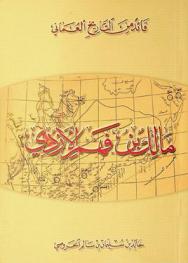 قائد من التاريخ العماني
مالك بن فهم الأزدي
خالد بن سليمان بن سالم الخروصي